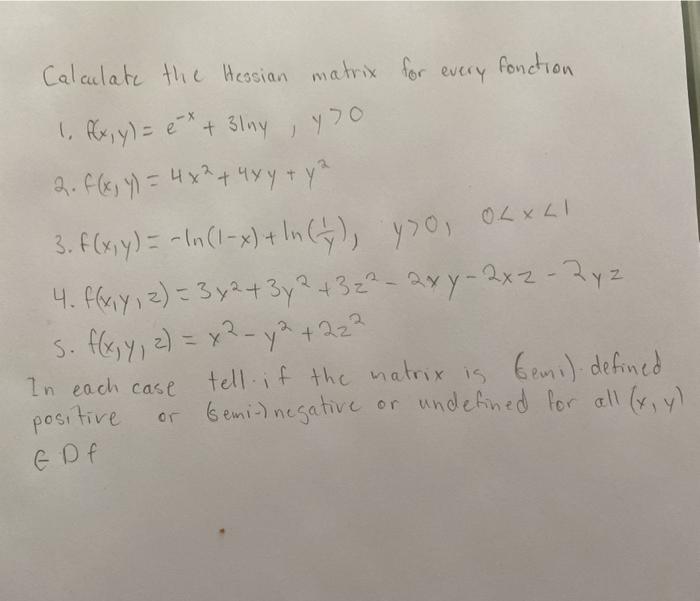 Calculate the Hessian matrix for every fonction
1. f(x,y) = e^-x + 3lny , y>0
2. f(x,y) = 4x² + 4xy + y²
3. f(x,y) = -ln(1-x) + ln(1/y), y>0, 0<x<1
4. f(x,y,z) = 3x² + 3y² + 3z² - 2xy - 2xz - 2yz
5. f(x,y,z) = x² - y² + 2z²
In each case tell if the matrix is (semi) defined
positive or (semi-) negative or undefined for all (x,y)
∈ Df